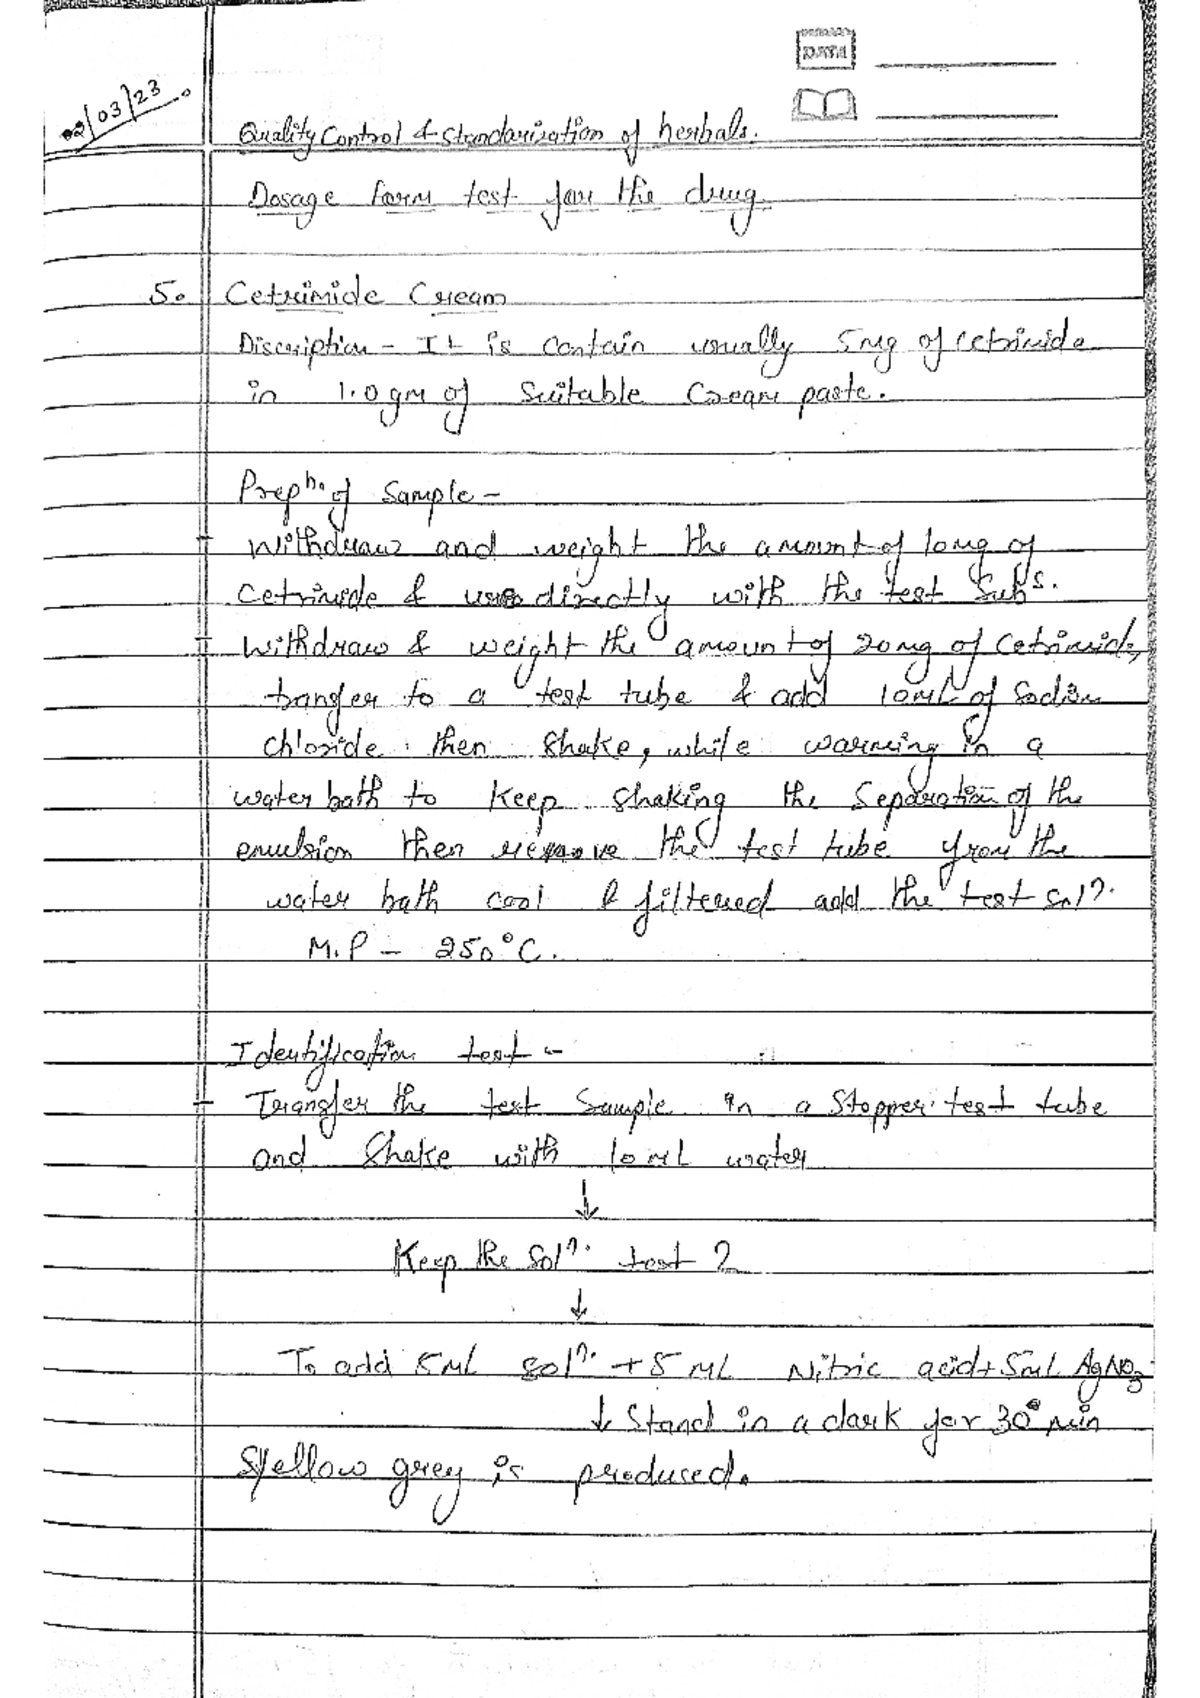 DATA
02/03/23.
Quality Control & Standarization of herbals.
Dosage form test for the drug.
5. Cetrimide Cream
Discription - It is contain usually 5mg of cetrimide
in 1.0gm of Suitable Cream paste.
Prepn. of Sample -
- Withdraw and weight the amount of 10mg of
Cetrimide & use directly with the test Subs.
- Withdraw & weight the amount of 20mg of Cetrimide,
transfer to a test tube & add 10mL of Sodium
chloride. then Shake, while warming in a
water bath to Keep shaking the Separation of the
emulsion then remove the test tube from the
water bath cool & filtered add the test soln.
M.P - 250°C.
Identification test -
- Transfer the test Sample in a Stopper test tube
and Shake with 10mL water
↓
Keep the Soln. test 2
↓
To add 5mL soln. + 5mL Nitric acid + 5mL AgNO3
↓ Stand in a dark for 30 min
Yellow grey is produced.